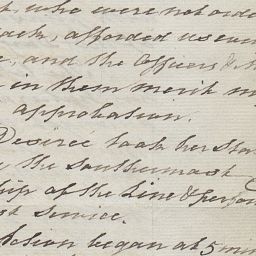 who were not orde
afforded us eve
, and the Officers &
in them merit m
approbation.
Desireé took her Sta
the Southermost
ship of the Line & perfor
st Service.
Action began at 5 min